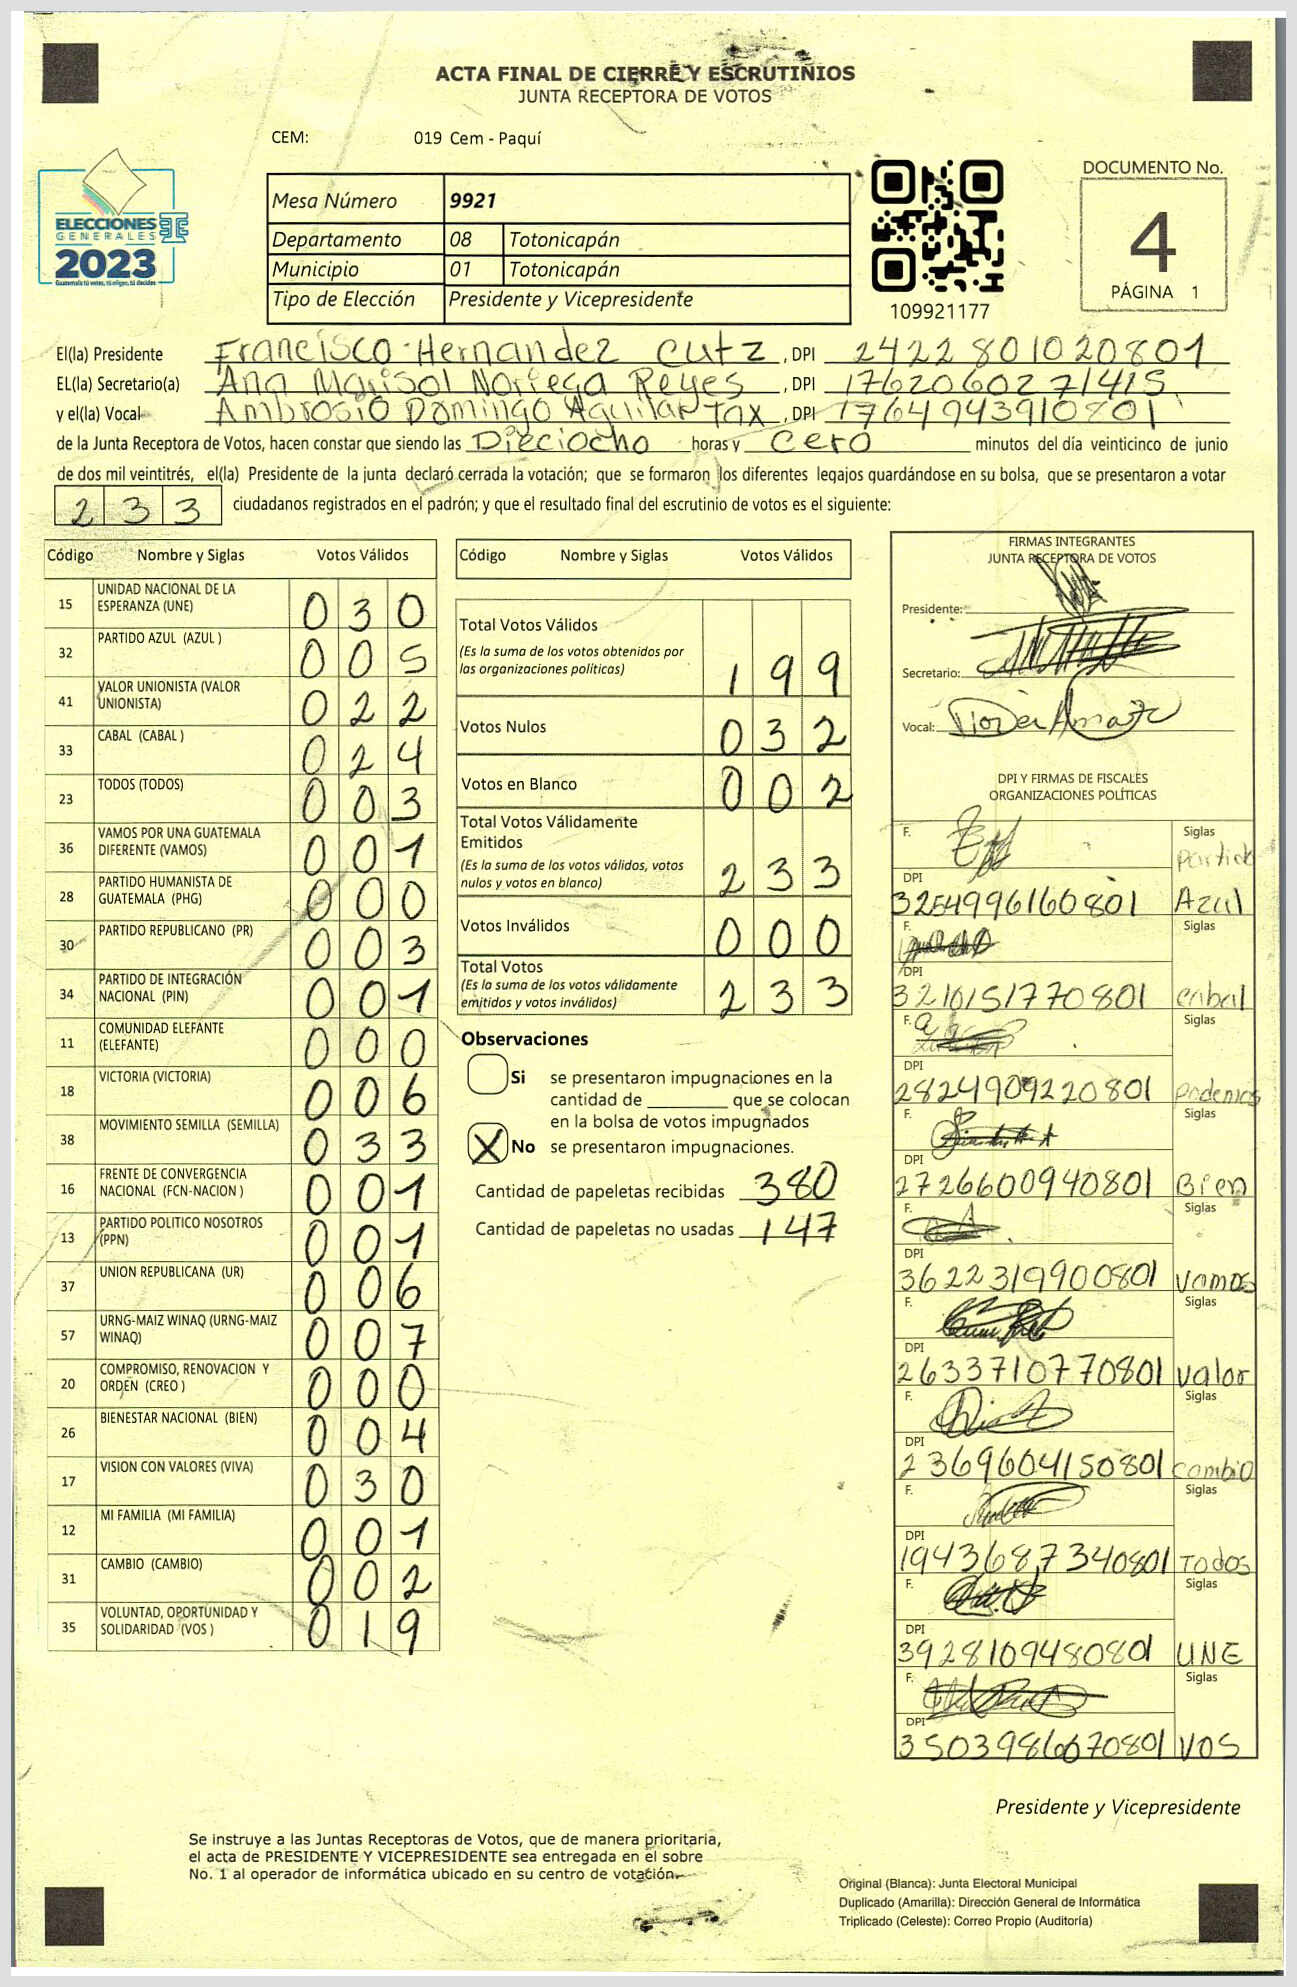 ACTA FINAL DE CIERRE Y ESCRUTINIOS
JUNTA RECEPTORA DE VOTOS
CEM: 019 Cem - Paquí
ELECCIONES
GENERALES
2023
Guatemala: tú votas, tú eliges, tú decides
Mesa Número 9921
Departamento 08 Totonicapán
Municipio 01 Totonicapán
Tipo de Elección Presidente y Vicepresidente
109921177
DOCUMENTO No.
4
PÁGINA 1
El(la) Presidente Francisco Hernandez Cutz , DPI 2422801020801
EL(la) Secretario(a) Ana Marisol Noriega Reyes , DPI 1762060271415
y el(la) Vocal Ambrosio Domingo Aguilar Tax , DPI 17649943910801
de la Junta Receptora de Votos, hacen constar que siendo las Dieciocho horas y cero minutos del día veinticinco de junio
de dos mil veintitrés, el(la) Presidente de la junta declaró cerrada la votación; que se formaron los diferentes legajos guardándose en su bolsa, que se presentaron a votar
233 ciudadanos registrados en el padrón; y que el resultado final del escrutinio de votos es el siguiente:
Código Nombre y Siglas Votos Válidos
15 UNIDAD NACIONAL DE LA ESPERANZA (UNE) 030
32 PARTIDO AZUL (AZUL ) 005
41 VALOR UNIONISTA (VALOR UNIONISTA) 022
33 CABAL (CABAL ) 024
23 TODOS (TODOS) 003
36 VAMOS POR UNA GUATEMALA DIFERENTE (VAMOS) 001
28 PARTIDO HUMANISTA DE GUATEMALA (PHG) 000
30 PARTIDO REPUBLICANO (PR) 003
34 PARTIDO DE INTEGRACIÓN NACIONAL (PIN) 001
11 COMUNIDAD ELEFANTE (ELEFANTE) 000
18 VICTORIA (VICTORIA) 006
38 MOVIMIENTO SEMILLA (SEMILLA) 033
16 FRENTE DE CONVERGENCIA NACIONAL (FCN-NACION ) 001
13 PARTIDO POLITICO NOSOTROS (PPN) 001
37 UNION REPUBLICANA (UR) 006
57 URNG-MAIZ WINAQ (URNG-MAIZ WINAQ) 007
20 COMPROMISO, RENOVACION Y ORDEN (CREO ) 000
26 BIENESTAR NACIONAL (BIEN) 004
17 VISION CON VALORES (VIVA) 030
12 MI FAMILIA (MI FAMILIA) 001
31 CAMBIO (CAMBIO) 002
35 VOLUNTAD, OPORTUNIDAD Y SOLIDARIDAD (VOS ) 019
Código Nombre y Siglas Votos Válidos
Total Votos Válidos
(Es la suma de los votos obtenidos por
las organizaciones políticas) 199
Votos Nulos 032
Votos en Blanco 002
Total Votos Válidamente
Emitidos
(Es la suma de los votos válidos, votos
nulos y votos en blanco) 233
Votos Inválidos 000
Total Votos
(Es la suma de los votos válidamente
emitidos y votos inválidos) 233
Observaciones
Si se presentaron impugnaciones en la
cantidad de ________ que se colocan
en la bolsa de votos impugnados
X No se presentaron impugnaciones.
Cantidad de papeletas recibidas 380
Cantidad de papeletas no usadas 147
FIRMAS INTEGRANTES
JUNTA RECEPTORA DE VOTOS
Presidente:
Secretario:
Vocal:
DPI Y FIRMAS DE FISCALES
ORGANIZACIONES POLÍTICAS
F. Siglas
partido
DPI
3254996160801 Azul
F. Siglas
DPI
3210151770801 cabal
F. Siglas
DPI
2824909220801 podemos
F. Siglas
DPI
2726600940801 Bien
F. Siglas
DPI
3622319900801 vamos
F. Siglas
DPI
2633710770801 valor
F. Siglas
DPI
2369604150801 cambio
F. Siglas
DPI
1943687340801 TODOS
F. Siglas
DPI
3928109480801 UNE
F. Siglas
DPI
3503986670801 VOS
Presidente y Vicepresidente
Se instruye a las Juntas Receptoras de Votos, que de manera prioritaria,
el acta de PRESIDENTE Y VICEPRESIDENTE sea entregada en el sobre
No. 1 al operador de informática ubicado en su centro de votación.
Original (Blanca): Junta Electoral Municipal
Duplicado (Amarilla): Dirección General de Informática
Triplicado (Celeste): Correo Propio (Auditoría)